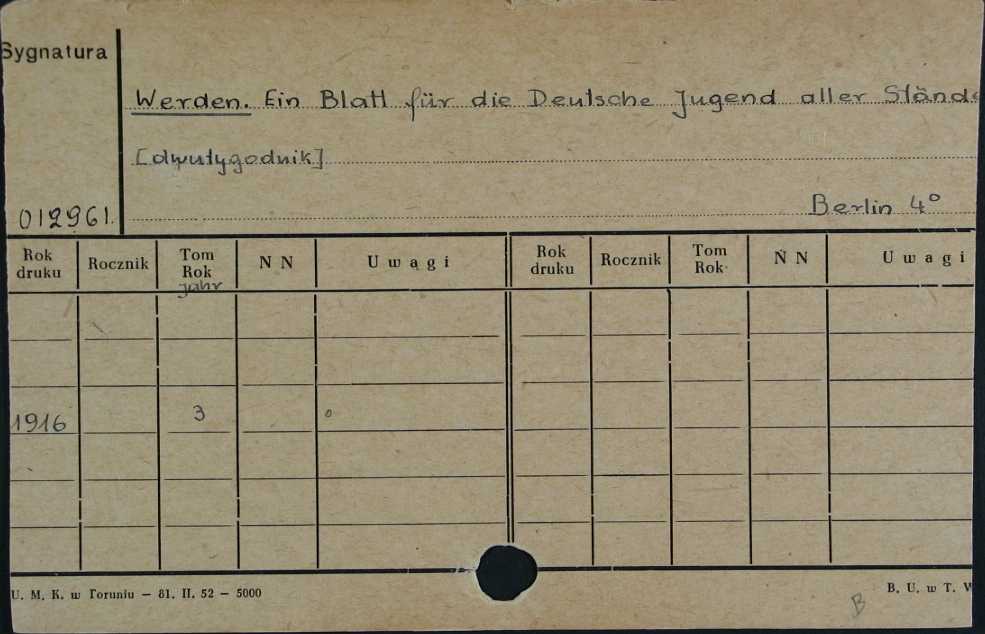 Sygnatura
Werden. Ein Blatt für die Deutsche Jugend aller Stände
[dwutygodnik]
012961.
Berlin 4°
Rok druku Rocznik Tom Rok Jahr N N Uwagi Rok druku Rocznik Tom Rok N N Uwagi
1916 3 o
U. M. K. w Toruniu – 81. II. 52 – 5000
B. U. w T.
B